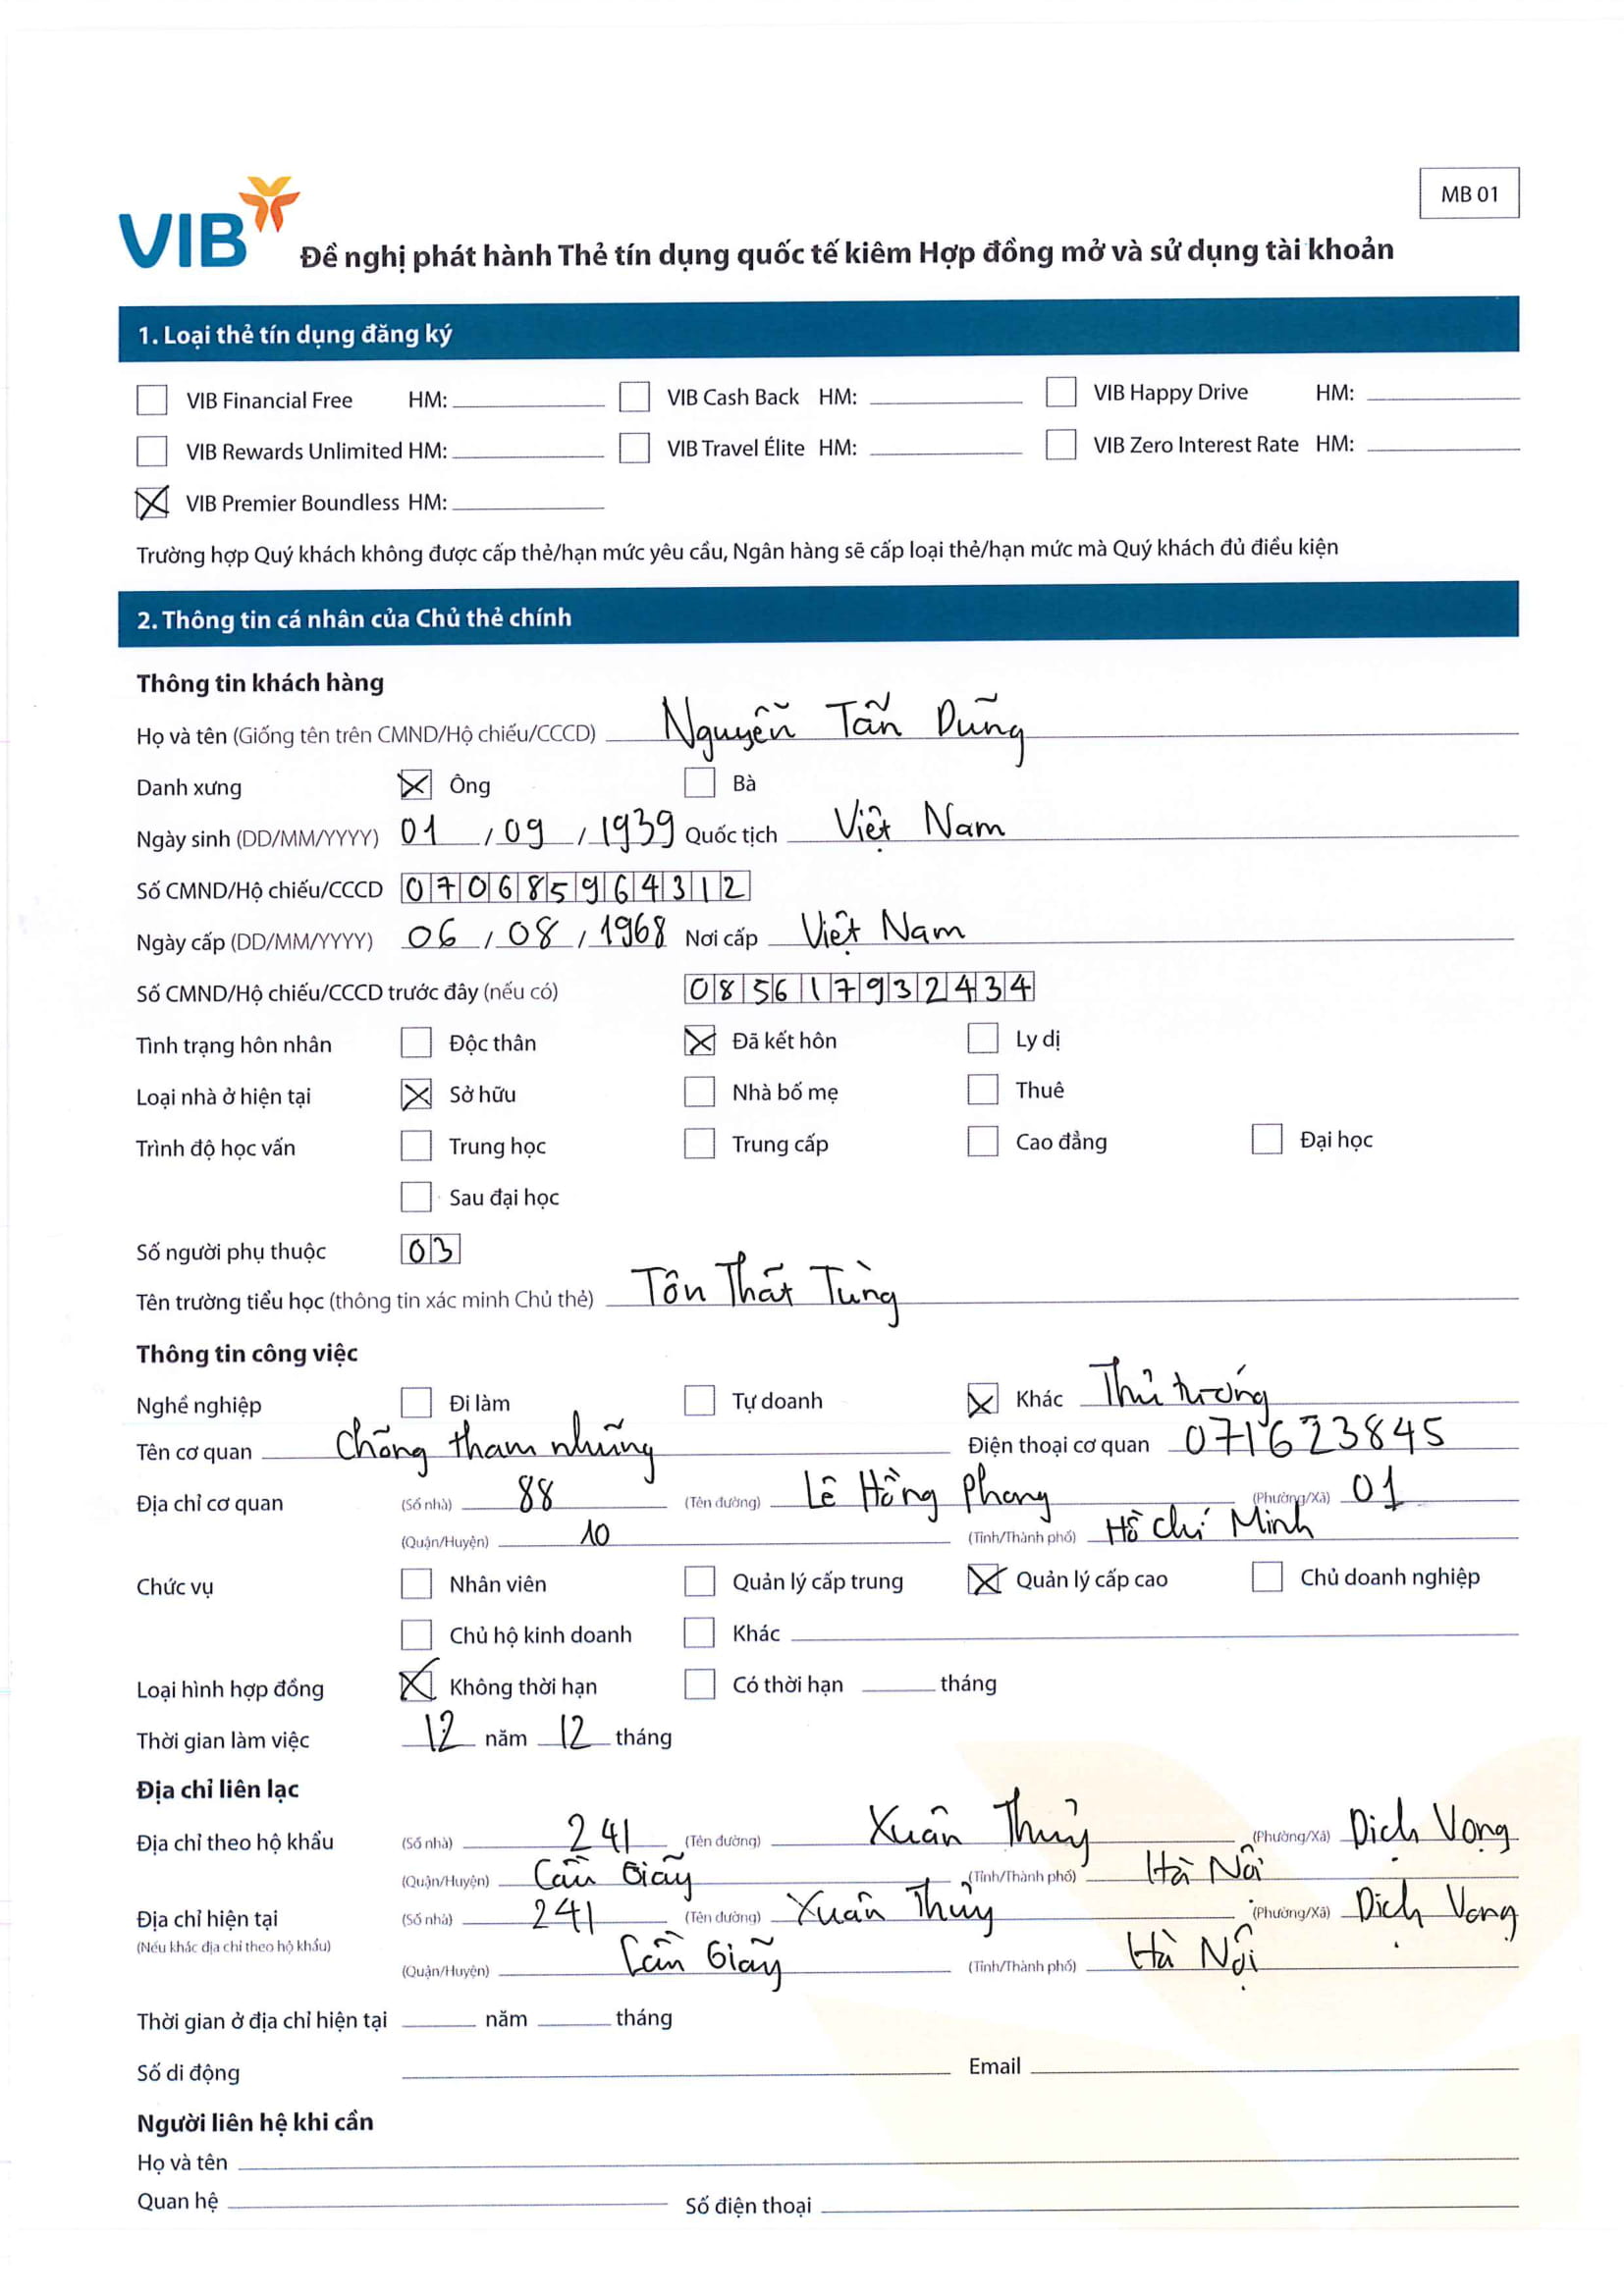 MB 01
VIB Đề nghị phát hành Thẻ tín dụng quốc tế kiêm Hợp đồng mở và sử dụng tài khoản
1. Loại thẻ tín dụng đăng ký
VIB Financial Free HM: VIB Cash Back HM: VIB Happy Drive HM:
VIB Rewards Unlimited HM: VIB Travel Élite HM: VIB Zero Interest Rate HM:
VIB Premier Boundless HM:
Trường hợp Quý khách không được cấp thẻ/hạn mức yêu cầu, Ngân hàng sẽ cấp loại thẻ/hạn mức mà Quý khách đủ điều kiện
2. Thông tin cá nhân của Chủ thẻ chính
Thông tin khách hàng
Họ và tên (Giống tên trên CMND/Hộ chiếu/CCCD) Nguyễn Tấn Dũng
Danh xưng Ông Bà
Ngày sinh (DD/MM/YYYY) 01 / 09 / 1939 Quốc tịch Việt Nam
Số CMND/Hộ chiếu/CCCD 070685964312
Ngày cấp (DD/MM/YYYY) 06 / 08 / 1968 Nơi cấp Việt Nam
Số CMND/Hộ chiếu/CCCD trước đây (nếu có) 085617932434
Tình trạng hôn nhân Độc thân Đã kết hôn Ly dị
Loại nhà ở hiện tại Sở hữu Nhà bố mẹ Thuê
Trình độ học vấn Trung học Trung cấp Cao đẳng Đại học
Sau đại học
Số người phụ thuộc 03
Tên trường tiểu học (thông tin xác minh Chủ thẻ) Tôn Thất Tùng
Thông tin công việc
Nghề nghiệp Đi làm Tự doanh Khác Thủ tướng
Tên cơ quan Chống tham nhũng Điện thoại cơ quan 071623845
Địa chỉ cơ quan (Số nhà) 88 (Tên đường) Lê Hồng Phong (Phường/Xã) 01
(Quận/Huyện) 10 (Tỉnh/Thành phố) Hồ Chí Minh
Chức vụ Nhân viên Quản lý cấp trung Quản lý cấp cao Chủ doanh nghiệp
Chủ hộ kinh doanh Khác
Loại hình hợp đồng Không thời hạn Có thời hạn tháng
Thời gian làm việc 12 năm 12 tháng
Địa chỉ liên lạc
Địa chỉ theo hộ khẩu (Số nhà) 241 (Tên đường) Xuân Thủy (Phường/Xã) Dịch Vọng
(Quận/Huyện) Cầu Giấy (Tỉnh/Thành phố) Hà Nội
Địa chỉ hiện tại (Số nhà) 241 (Tên đường) Xuân Thủy (Phường/Xã) Dịch Vọng
(Nếu khác địa chỉ theo hộ khẩu)
(Quận/Huyện) Cầu Giấy (Tỉnh/Thành phố) Hà Nội
Thời gian ở địa chỉ hiện tại năm tháng
Số di động Email
Người liên hệ khi cần
Họ và tên
Quan hệ Số điện thoại